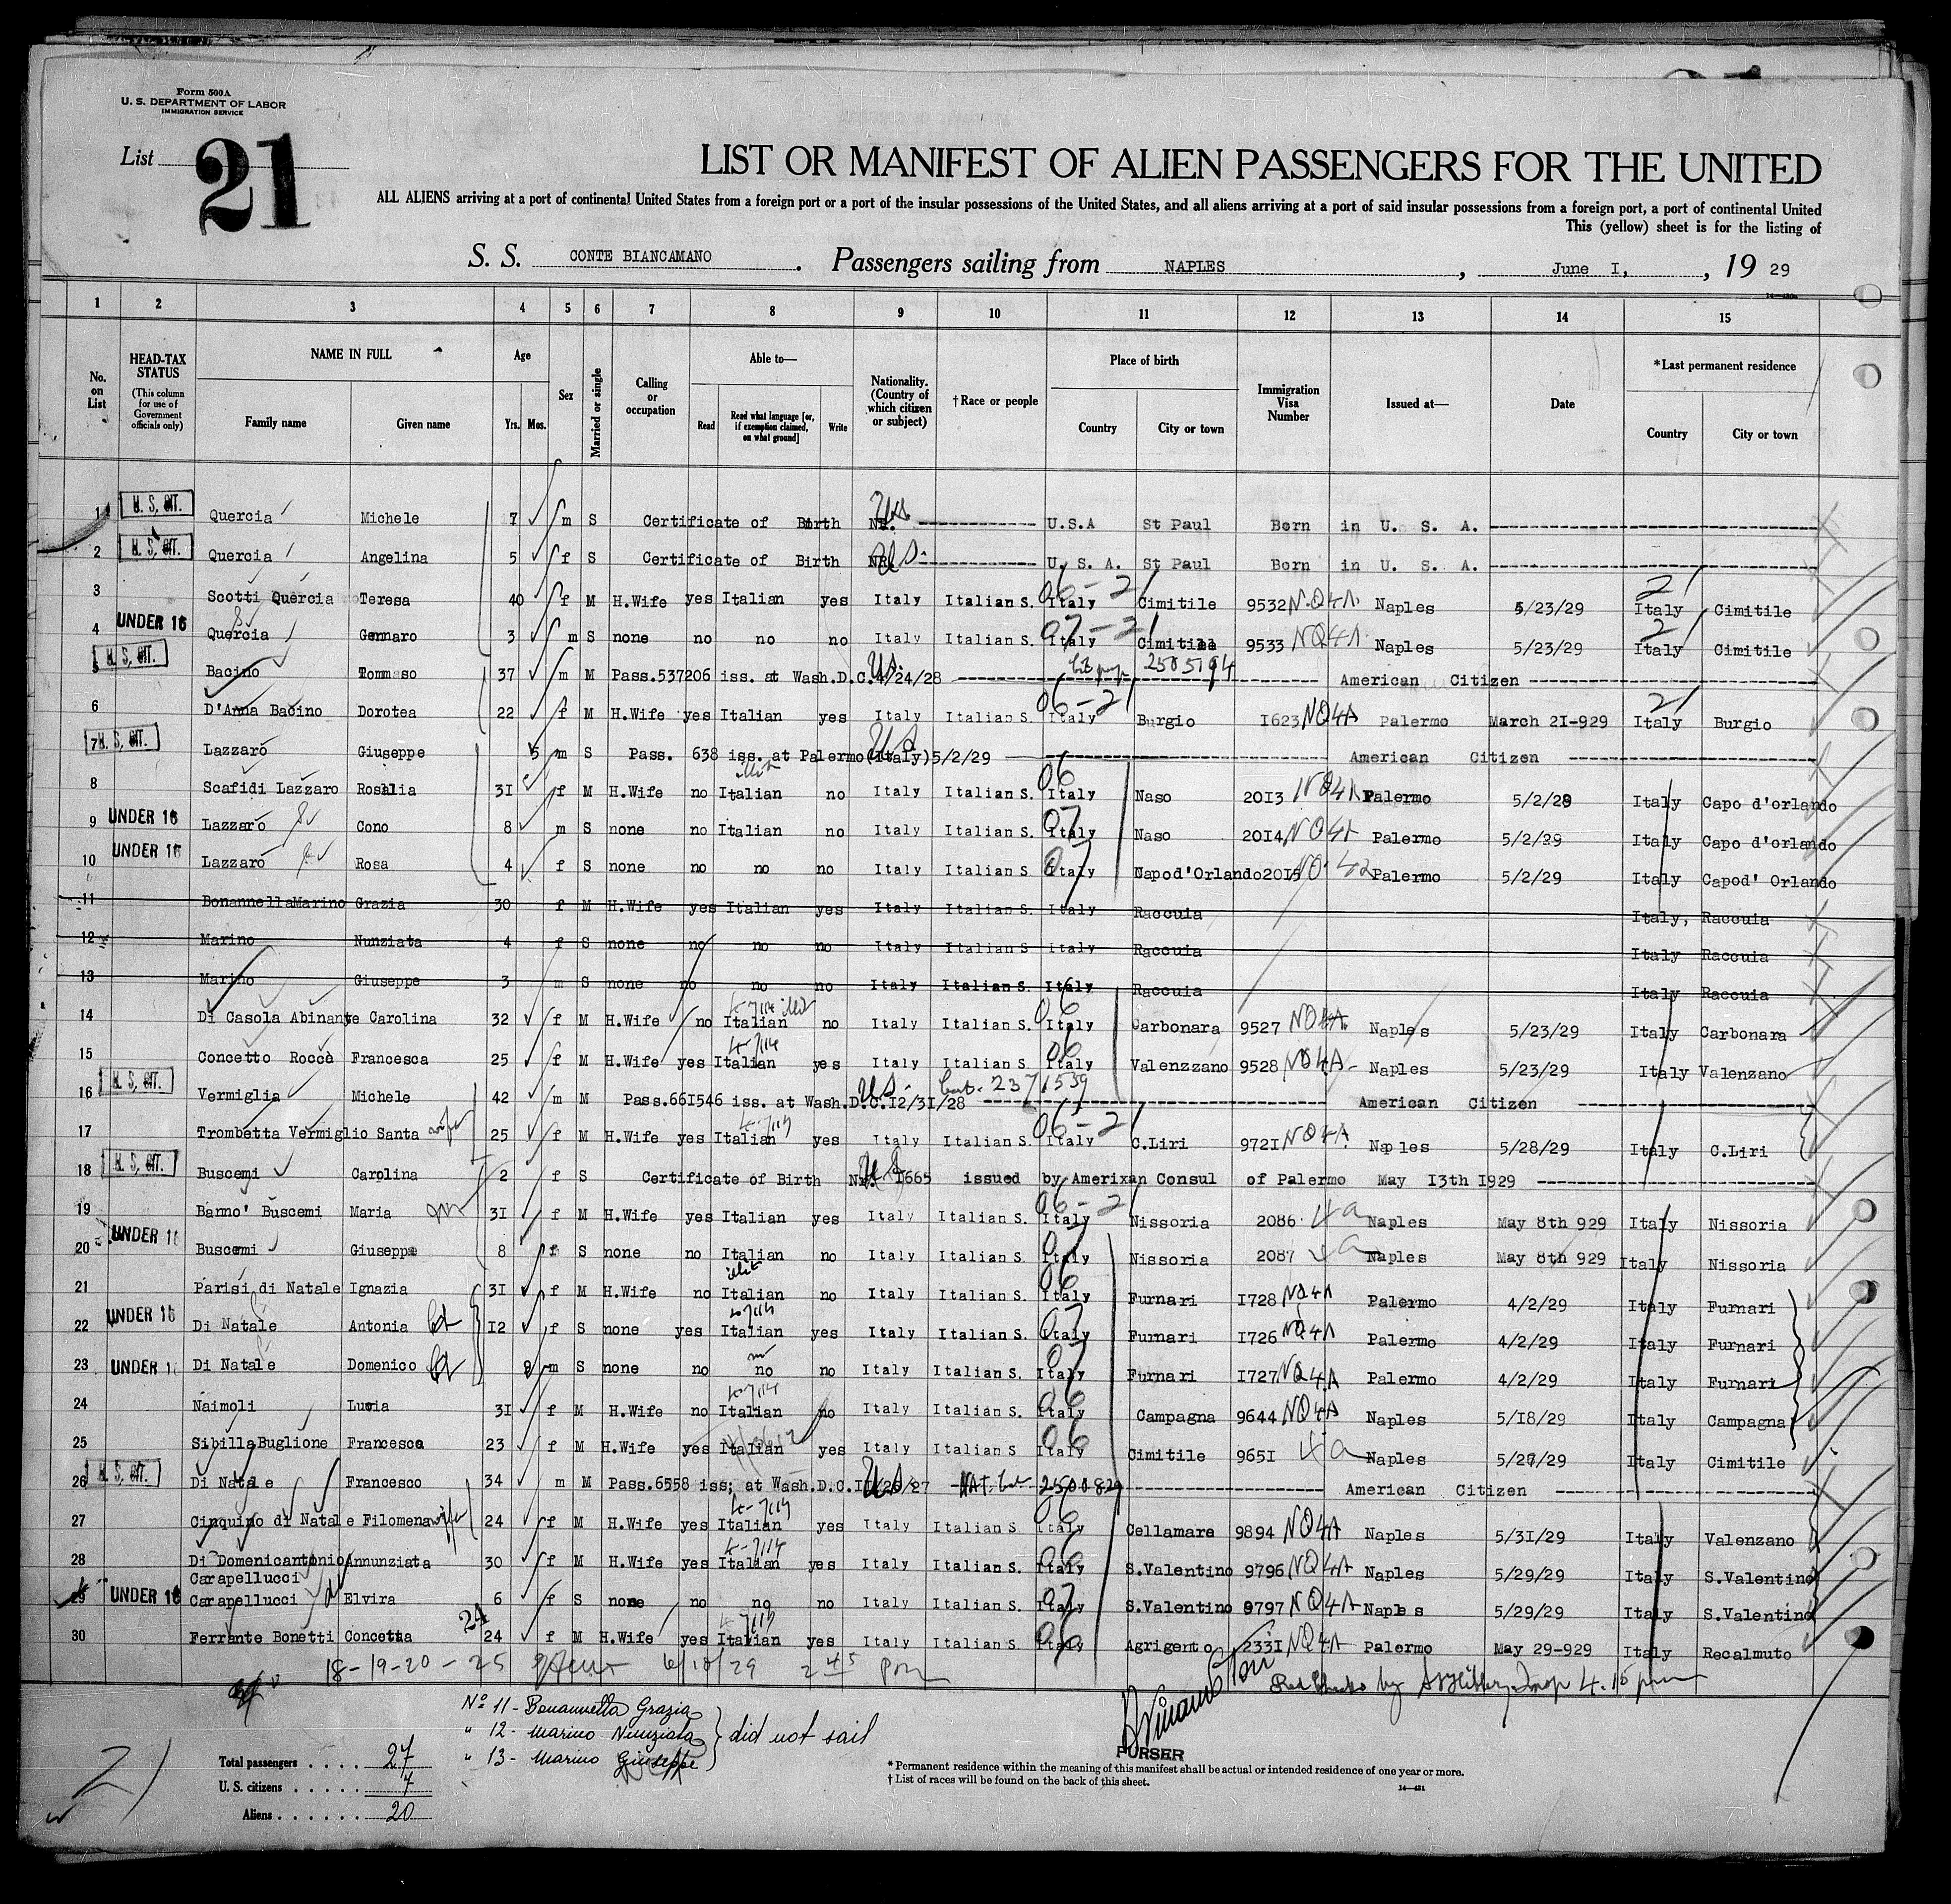 Form 500A
U. S. DEPARTMENT OF LABOR
IMMIGRATION SERVICE
List 21
LIST OR MANIFEST OF ALIEN PASSENGERS FOR THE UNITED
ALL ALIENS arriving at a port of continental United States from a foreign port or a port of the insular possessions of the United States, and all aliens arriving at a port of said insular possessions from a foreign port, a port of continental United
This (yellow) sheet is for the listing of
S. S. CONTE BIANCAMANO. Passengers sailing from NAPLES, June I, , 19 29
1 2 3 4 5 6 7 8 9 10 11 12 13 14 15
No. on List
HEAD-TAX STATUS
(This column for use of Government officials only)
NAME IN FULL
Family name Given name
Age
Yrs. Mos.
Sex
Married or single
Calling or occupation
Able to—
Read Read what language [or, if exemption claimed, on what ground] Write
Nationality. (Country of which citizen or subject)
†Race or people
Place of birth
Country City or town
Immigration Visa Number
Issued at—
Date
*Last permanent residence
Country City or town
1 U. S. CIT. Quercia Michele 7 m S Certificate of Birth U.S.A St Paul Born in U. S. A.
2 U. S. CIT. Quercia Angelina 5 f S Certificate of Birth U. S. A. St Paul Born in U. S. A.
3 Scotti Quercia Teresa 40 f M H.Wife yes Italian yes Italy Italian S. Italy Cimitile 9532 NQ4A Naples 5/23/29 Italy Cimitile
4 UNDER 16 Quercia Gennaro 3 m S none no no no Italy Italian S. Italy Cimitile 9533 NQ4A Naples 5/23/29 Italy Cimitile
5 U. S. CIT. Bacino Tommaso 37 m M Pass.537206 iss. at Wash.D.C.4/24/28 2505194 American Citizen
6 D'Anna Bacino Dorotea 22 f M H.Wife yes Italian yes Italy Italian S. Italy Burgio I623 NQ4A Palermo March 2I-929 Italy Burgio
7 U. S. CIT. Lazzaro Giuseppe 5 m S Pass. 638 iss. at Palermo(Italy)5/2/29 American Citizen
8 Scafidi Lazzaro Rosalia 3I f M H.Wife no Italian no Italy Italian S. Italy Naso 20I3 NQ4A Palermo 5/2/29 Italy Capo d'orlando
9 UNDER 16 Lazzaro Cono 8 m S none no Italian no Italy Italian S. Italy Naso 20I4 NQ4A Palermo 5/2/29 Italy Capo d'orlando
10 UNDER 16 Lazzaro Rosa 4 f S none no no no Italy Italian S. Italy Napod'Orlando 20I5 Palermo 5/2/29 Italy Capod' Orlando
11 BonannellaMarino Grazia 30 f M H.Wife yes Italian yes Italy Italian S. Italy Raccuia Italy, Raccuia
12 Marino Nunziata 4 f S none no no no Italy Italian S Italy Raccuia Italy Raccuia
13 Marino Giuseppe 3 m S none no no no Italy Italian S. Italy Raccuia Italy Raccuia
14 Di Casola Abinante Carolina 32 f M H.Wife no Italian no Italy Italian S. Italy Carbonara 9527 NQ4A Naples 5/23/29 Italy Carbonara
15 Concetto Rocca Francesca 25 f M H.Wife yes Italian yes Italy Italian S. Italy Valenzzano 9528 NQ4A Naples 5/23/29 Italy Valenzano
16 U. S. CIT. Vermiglia Michele 42 m M Pass.66I546 iss. at Wash.D.C.I2/3I/28 2371539 American Citizen
17 Trombetta Vermiglio Santa wife 25 f M H.Wife yes Italian yes Italy Italian S. Italy C.Liri 972I NQ4A Naples 5/28/29 Italy C.Liri
18 U. S. CIT. Buscemi Carolina 2 f S Certificate of Birth Nr. I665 issued by Amerixan Consul of Palermo May I3th I929
19 Banno' Buscemi Maria 3I f M H.Wife yes Italian yes Italy Italian S. Italy Nissoria 2086 4a Naples May 8th 929 Italy Nissoria
20 UNDER 16 Buscemi Giuseppe 8 f S none no Italian no Italy Italian S. Italy Nissoria 2087 4a Naples May 8th 929 Italy Nissoria
21 Parisi di Natale Ignazia 3I f M H.Wife no Italian no Italy Italian S. Italy Furnari I728 NQ4A Palermo 4/2/29 Italy Furnari
22 UNDER 16 Di Natale Antonia I2 f S none yes Italian yes Italy Italian S. Italy Furnari I726 NQ4A Palermo 4/2/29 Italy Furnari
23 UNDER 16 Di Natale Domenico 8 m S none no no no Italy Italian S. Italy Furnari I727 NQ4A Palermo 4/2/29 Italy Furnari
24 Naimoli Lucia 3I f M H.Wife no Italian no Italy Italian S. Italy Campagna 9644 NQ4A Naples 5/I8/29 Italy Campagna
25 SibillaBuglione Francesca 23 f M H.Wife yes Italian yes Italy Italian S. Italy Cimitile 965I 4a Naples 5/27/29 Italy Cimitile
26 U. S. CIT. Di Natale Francesco 34 m M Pass.6558 iss; at Wash.D.C. 2500829 American Citizen
27 Cinquino di Natale Filomena wife 24 f M H.Wife yes Italian yes Italy Italian S Italy Cellamare 9894 NQ4A Naples 5/3I/29 Italy Valenzano
28 Di Domenicantonio Carapellucci Annunziata 30 f M H.Wife yes Italian yes Italy Italian S. Italy S.Valentino 9796 NQ4A Naples 5/29/29 Italy S.Valentino
29 UNDER 16 Carapellucci Elvira 6 f S none no no no Italy Italian S. Italy S.Valentino 9797 NQ4A Naples 5/29/29 Italy S.Valentino
30 Ferrante Bonetti Concetta 24 24 f M H.Wife yes Italian yes Italy Italian S. Italy Agrigento 233I NQ4A Palermo May 29-929 Italy Recalmuto
18-19-20-25 6/10/29 2 45 pm
No 11 - Bonannella Grazia
" 12 - Marino Nunziata } did not sail
" 13 - Marino Giuseppe
PURSER
Total passengers 27
U. S. citizens 7
Aliens 20
21
* Permanent residence within the meaning of this manifest shall be actual or intended residence of one year or more.
† List of races will be found on the back of this sheet.
14—431